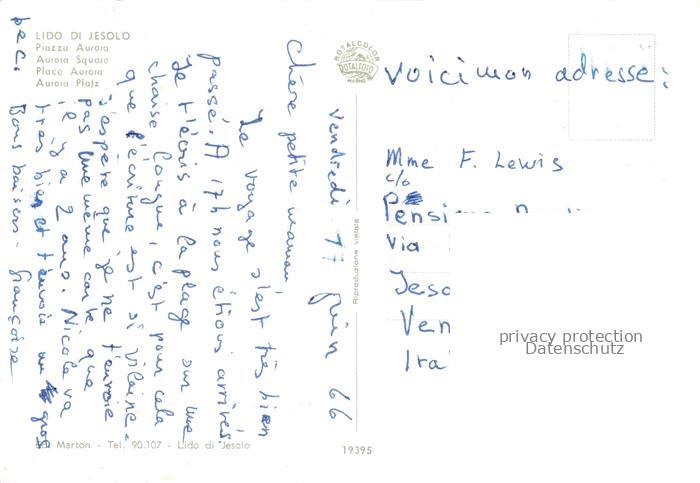 LIDO DI JESOLO
Piazza Aurora
Aurora Square
Place Aurora
Aurora Platz
ROTALCOLOR
ROTALFOTO
MILANO
Vendredi 17 Juin 66
Chère petite maman,
Le voyage s'est très bien
passé. A 17h nous étions arrivés.
Je t'écris à la plage sur une
chaise longue, c'est pour cela
que l'écriture est si vilaine.
J'espère que je ne t'envoie
pas une même carte que
il y a 2 ans. Nicole va
très bien et t'envoie un gros
bec.
Bons baisers. Françoise
Voici mon adresse:
Mme F. Lewis
c/o
Pensi
Via
Jeso
Ven
Ita
privacy protection
Datenschutz
Riproduzione vietata
Marton - Tel. 90.107 - Lido di Jesolo
19395